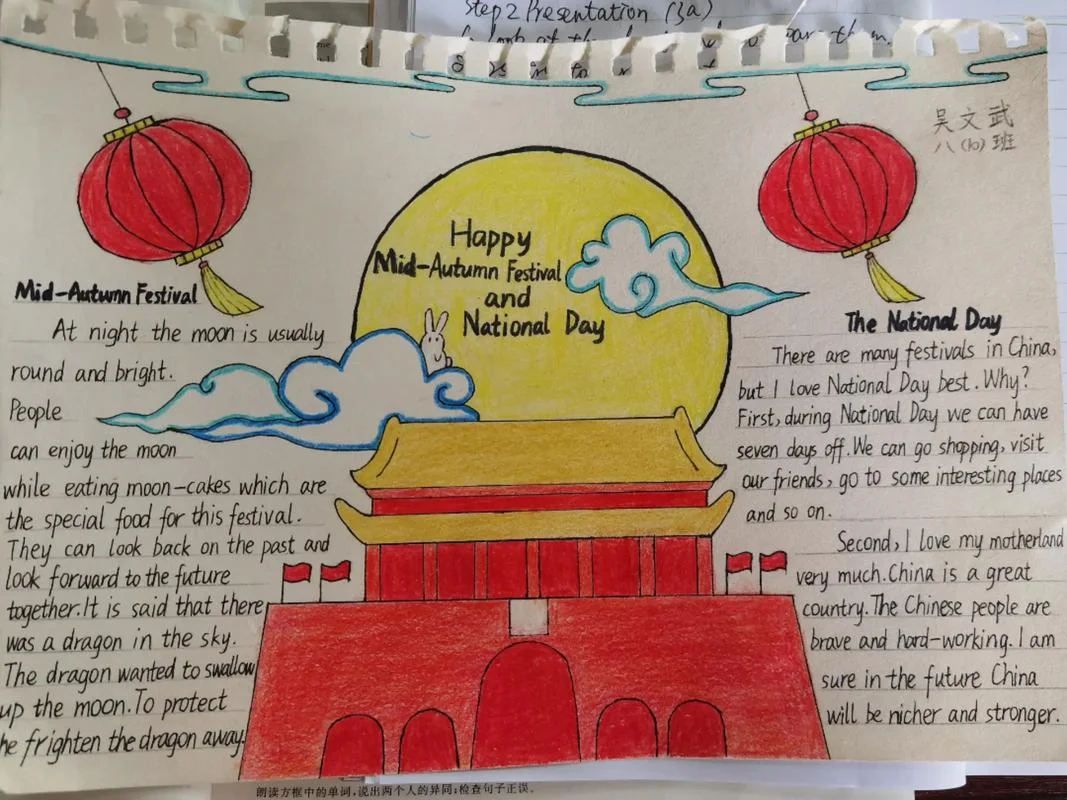 Step 2 Presentation (3a)
吴文武
八(10)班
Happy
Mid-Autumn Festival
and
National Day
Mid-Autumn Festival
At night the moon is usually
round and bright.
People
can enjoy the moon
while eating moon-cakes which are
the special food for this festival.
They can look back on the past and
look forward to the future
together. It is said that there
was a dragon in the sky.
The dragon wanted to swallow
up the moon. To protect
he frighten the dragon away.
The National Day
There are many festivals in China,
but I love National Day best. Why?
First, during National Day we can have
seven days off. We can go shopping, visit
our friends, go to some interesting places
and so on.
Second, I love my motherland
very much. China is a great
country. The Chinese people are
brave and hard-working. I am
sure in the future China
will be nicher and stronger.
朗读方框中的单词,说出两个人的异同;检查句子正误。